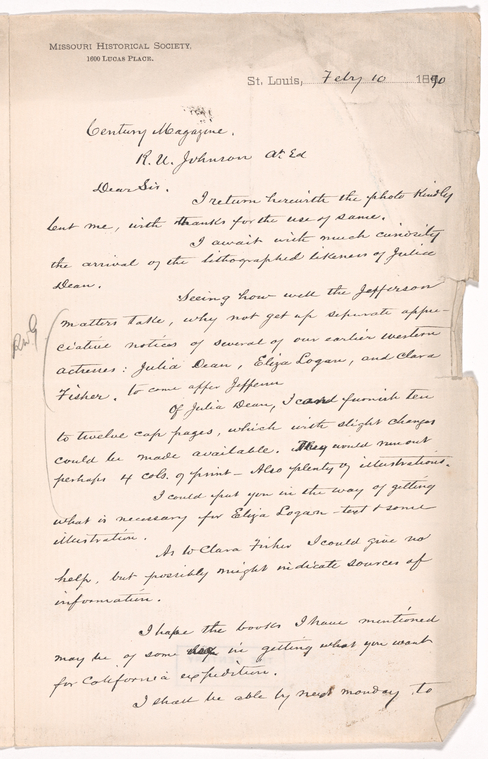 MISSOURI HISTORICAL SOCIETY.
1600 LUCAS PLACE.
St. Louis, Feby 10 1890
Century Magazine.
R. U. Johnson At Ed
Dear Sir.
I return herewith the photo kindly
lent me, with thanks for the use of same.
I await with much curiosity
the arrival of the lithographed likeness of Julia
Dean.
Seeing how well the Jefferson
matters take, why not get up separate appre-
ciative notices of several of our earlier western
actresses: Julia Dean, Eliza Logan, and Clara
Fisher. to come after Jefferson
Of Julia Dean, I can furnish ten
to twelve cap pages, which with slight changes
could be made available. They would run out
perhaps 4 cols. of print - Also plenty of illustrations.
I could put you in the way of getting
what is necessary for Eliza Logan - text & some
illustration.
As to Clara Fisher I could give no
help, but possibly might indicate sources of
information.
I hope the books I have mentioned
may be of some in getting what you want
for California expedition.
I shall be able by next monday to